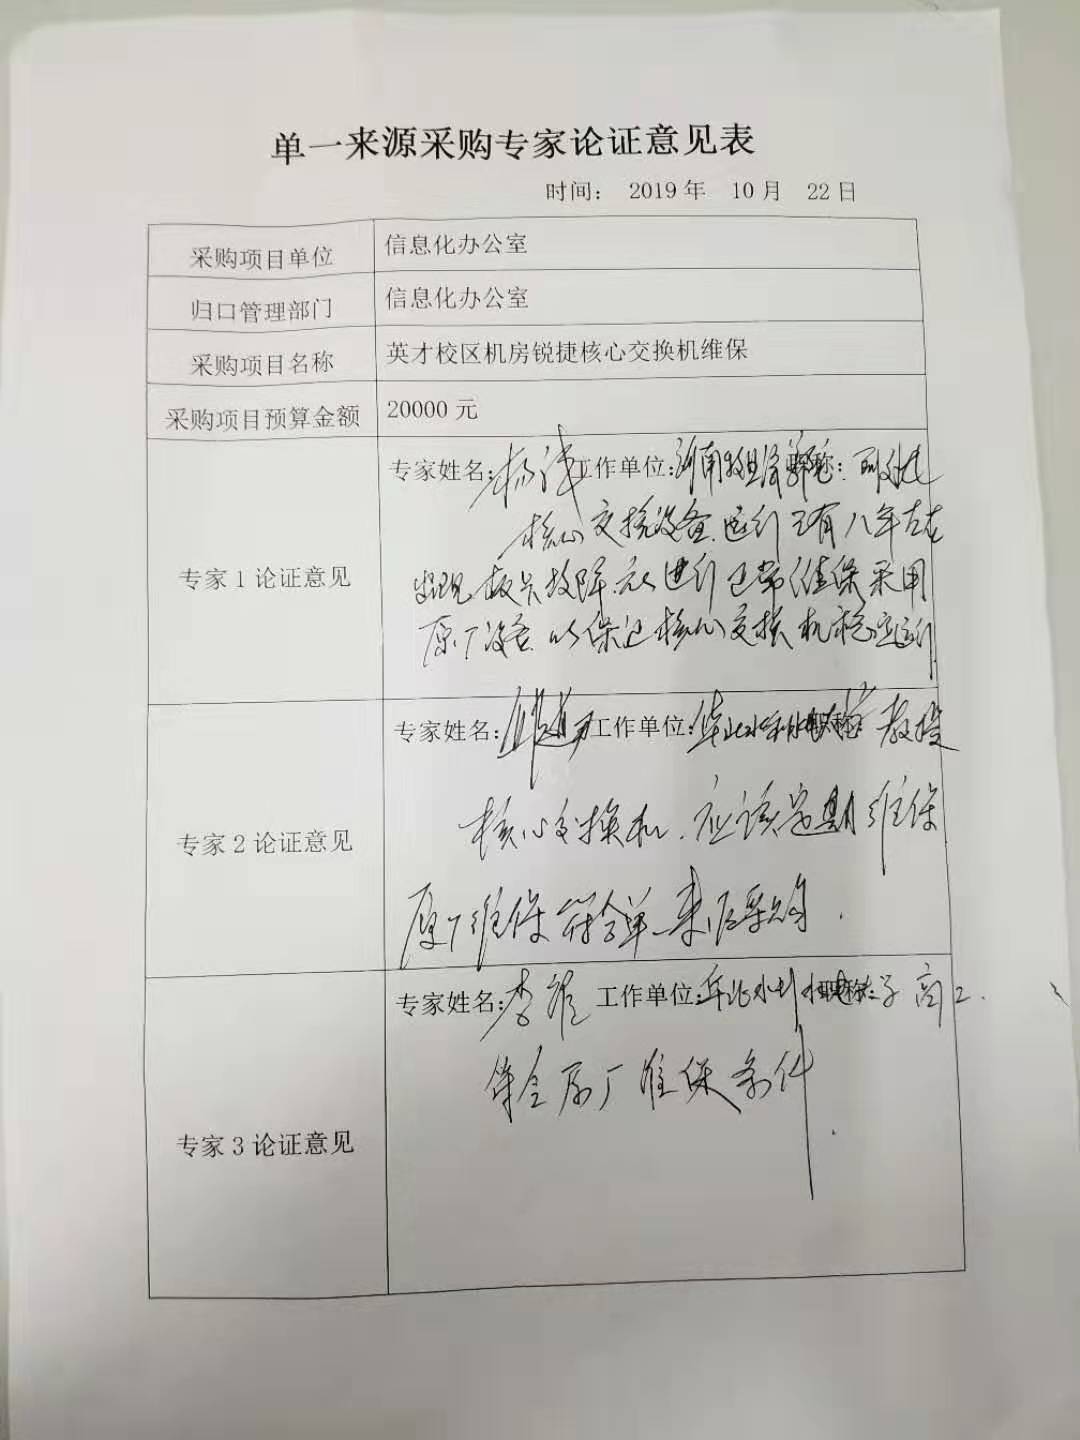 单一来源采购专家论证意见表
时间： 2019 年 10 月 22 日
采购项目单位 信息化办公室
归口管理部门 信息化办公室
采购项目名称 英才校区机房锐捷核心交换机维保
采购项目预算金额 20000 元
专家姓名： 工作单位： 职称：
核心交换设备 运行已有八年左右
专家 1 论证意见
出现板卡故障 进行 维保 采用
原厂设备 以保证核心交换机稳定运行
专家姓名： 工作单位：华北水利水电大学 教授
核心交换机 应该定期维保
专家 2 论证意见
原厂维保符合单一来源采购 .
专家姓名： 工作单位：华北水利水电大学 高工 .
符合原厂维保条件 .
专家 3 论证意见